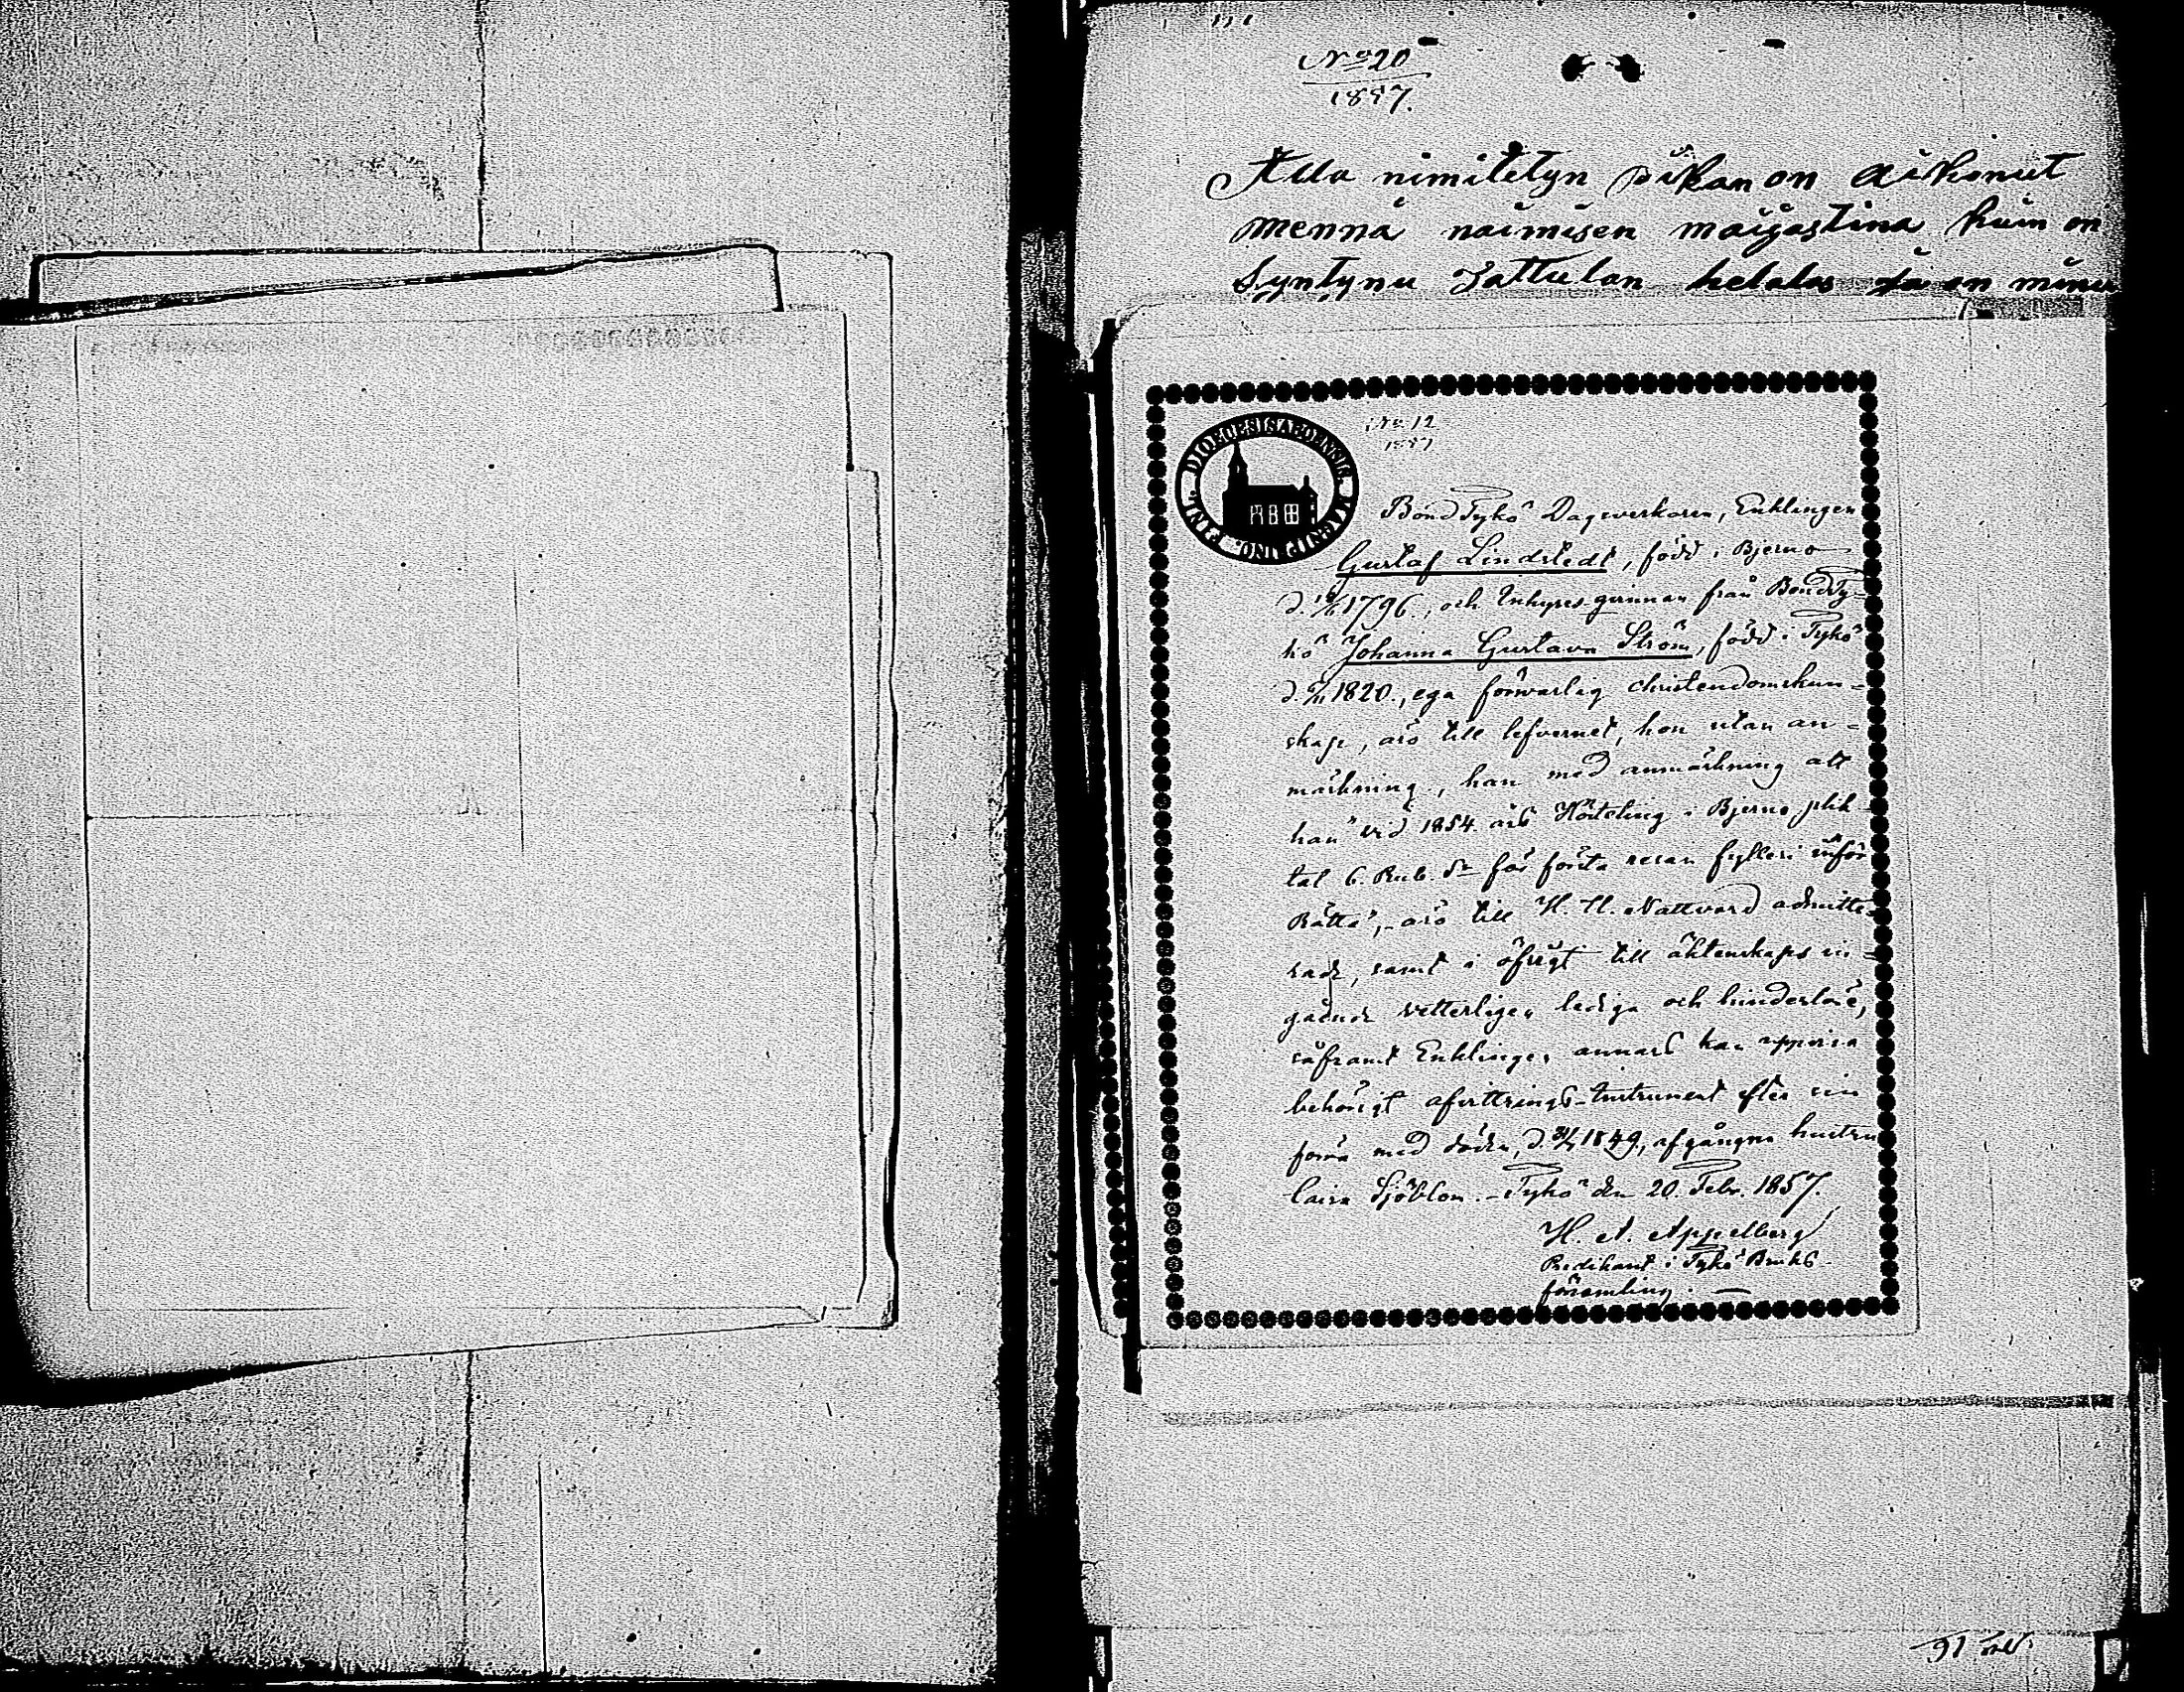 No 20
1857.
Alla nimitetyn piikan on aikonut
mennä naimisen maijastina kuin on
Syntynu Sattulan
No 12
1857
DIOECESIS ABOENSIS MAGNI PRINC. FINL.
Bond Tykö Dagsverkaren, Enklingen
Gustaf Lindstedt, född i Bjerno
1796., och Inhyres qvinnan från Bond Ty-
kö Johanna Gustava Ström, född i Tykö
1820., ega försvarlig christendomskun-
skap, äro till lefvernet, hon utan an-
märkning, han med anmärkning att
han vid 1854. års Hösteting i Bjerno plik-
tat 6. Rub. Sr för första resan fylleri inför
Rätta", äro till H. H. Nattvard admitte-
rade, samt i öfrigt till äktenskaps in-
gående vetterligen lediga och hinderlöse,
såframt Enklingen annars kan uppvisa
behörigt afvittrings-Instrument efter sin
förra med döden, d. 1849, afgångna hustru
Caisa Sjöblom. - Tykö den 20. Febr. 1857.
H. A. Appelberg
Predikant i Tykö Bruks
församling.